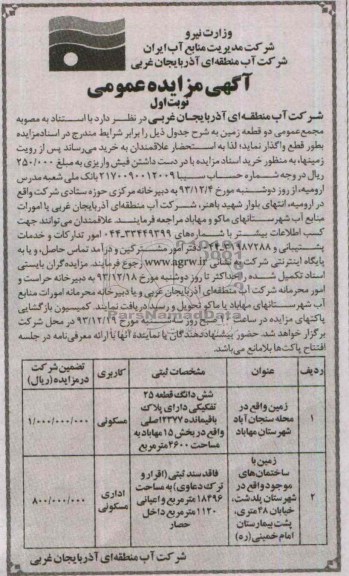 وزارت نیرو
شرکت مدیریت منابع آب ایران
شرکت آب منطقه‌ای آذربایجان غربی
آگهی مزایده عمومی
نوبت اول
شرکت آب منطقه‌ای آذربایجان غربی در نظر دارد با استناد به مصوبه
مجمع عمومی دو قطعه زمین به شرح جدول ذیل را برابر شرایط مندرج در اسناد مزایده
بطور قطع واگذار نماید؛ لذا به استحضار علاقمندان به خرید می‌رساند پس از رویت
زمینها، به منظور خرید اسناد مزایده با در دست داشتن فیش واریزی به مبلغ ۲۵۰/۰۰۰
ریال در وجه شماره حساب سیبا ۲۱۷۰۰۹۰۰۱۲۰۰۹ بانک ملی شعبه مدرس
ارومیه، از روز دوشنبه مورخ ۹۳/۱۲/۴ به دبیرخانه مرکزی حوزه ستادی شرکت واقع
در ارومیه، انتهای بلوار شهید باهنر، شرکت آب منطقه‌ای آذربایجان غربی یا امورات
منابع آب شهرستانهای ماکو و مهاباد مراجعه فرمایند. علاقمندان می توانند جهت
کسب اطلاعات بیشتر با شماره‌های ۰۴۴-۳۳۴۴۹۳۹۹ امور تدارکات و خدمات
پشتیبانی و ۰۴۴-۳۱۹۸۷۲۸۸ دفتر امور مشترکین و درآمد تماس حاصل، و یا به
پایگاه اینترنتی شرکت به نشانی www.agrw.ir رجوع فرمایند. مزایده‌گران بایستی
اسناد تکمیل شده را حداکثر تا روز دوشنبه مورخ ۹۳/۱۲/۱۸ به دبیرخانه حراست و
امور محرمانه شرکت آب منطقه‌ای آذربایجان غربی و یا دبیرخانه محرمانه امورات منابع
آب شهرستانهای مهاباد یا ماکو تحویل و رسید دریافت نمایند. کمیسیون بازگشایی
پاکتهای مزایده در ساعت ۱۰ صبح روز سه‌شنبه مورخ ۹۳/۱۲/۱۹ در محل شرکت
برگزار خواهد شد. حضور پیشنهاددهندگان یا نماینده آنها با ارائه معرفی‌نامه در جلسه
افتتاح پاکت‌ها بلامانع می‌باشد.
ردیف عنوان مشخصات ثبتی کاربری تضمین شرکت در مزایده (ریال)
۱ زمین واقع در محله سنجان آباد شهرستان مهاباد شش دانگ قطعه ۲۵ تفکیکی دارای پلاک باقیمانده ۱۲۳۷۷ اصلی واقع در بخش ۱۵ مهاباد به مساحت ۲۶۰۰ مترمربع مسکونی ۱/۰۰۰/۰۰۰/۰۰۰
۲ زمین با ساختمان‌های موجود واقع در شهرستان پلدشت، خیابان ۳۸ متری، پشت بیمارستان امام خمینی (ره) فاقد سند ثبتی (اقرار و ترک دعاوی) به مساحت ۱۸۴۹۶ مترمربع و اعیانی ۱۱۲۰ مترمربع داخل حصار اداری مسکونی ۸۰۰/۰۰۰/۰۰۰
شرکت آب منطقه‌ای آذربایجان غربی